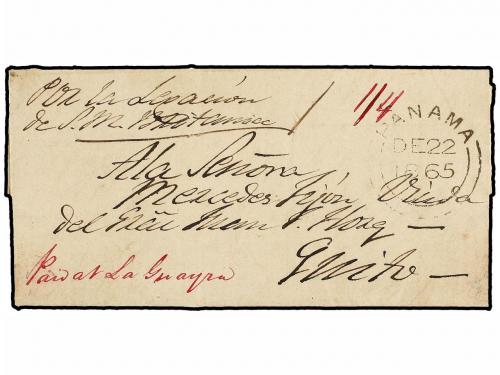 Por la Legación
de S. M. Britanica
1/4
PANAMA
DE 22
1865
A la Señora
Mercedes Jijón Viuda
del Gral
Quito
Paid at La Guayra